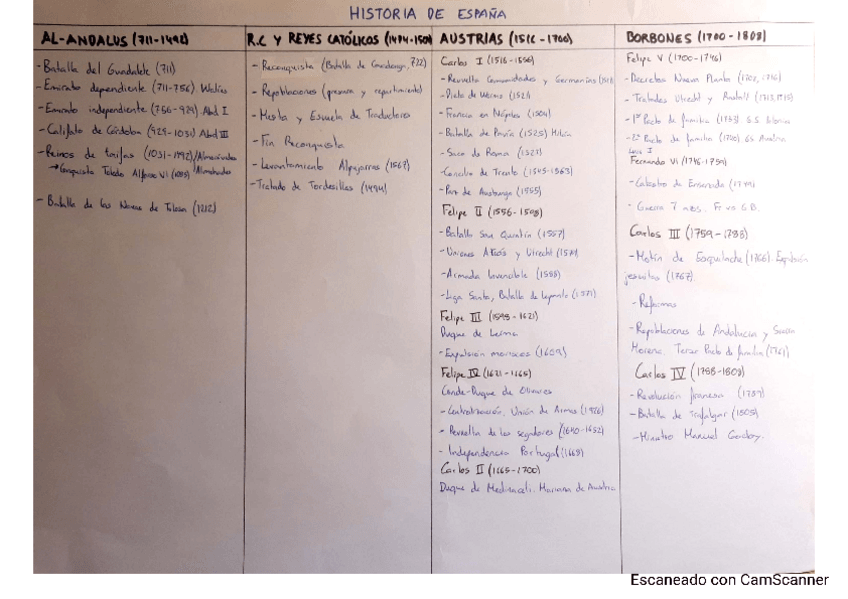 HISTORIA DE ESPAÑA
AL-ANDALUS (711-1492)
- Batalla del Guadalete (711)
- Emirato dependiente (711-756) Walíes
- Emirato independiente (756-929) Abd I
- Califato de Córdoba (929-1031) Abd III
- Reinos de taifas (1031-1492)/Almorávides
/Almohades
→ Conquista Toledo Alfonso VI (1085)
- Batalla de las Navas de Tolosa (1212)
R.C Y REYES CATÓLICOS (1474-150
- Reconquista (Batalla de Covadonga, 722)
- Repoblaciones (presura y repartimiento)
- Mesta y Escuela de Traductores
- Fin Reconquista
- Levantamiento Alpujarras (1567)
- Tratado de Tordesillas (1494)
AUSTRIAS (1516-1700)
Carlos I (1516-1556)
- Revuelta Comunidades y Germanías
- Dieta de Worms (1521)
- Francia en Nápoles (1504)
- Batalla de Pavía (1525) Milán
- Saco de Roma (1527)
- Concilio de Trento (1545-1563)
- Paz de Augsburgo (1555)
Felipe II (1556-1598)
- Batalla San Quintín (1557)
- Uniones Arrás y Utrecht
- Armada Invencible (1588)
- Liga Santa, Batalla de Lepanto (1571)
Felipe III (1598-1621)
Duque de Lerma
- Expulsión moriscos (1609)
Felipe IV (1621-1665)
Conde-Duque de Olivares
- Centralización. Unión de Armas (1626)
- Revuelta de los segadores (1640-1652)
- Independencia Portugal (1668)
Carlos II (1665-1700)
Duque de Medinaceli. Mariana de Austria
BORBONES (1700-1808)
Felipe V (1700-1746)
- Decretos Nueva Planta
- Tratados Utrecht y Rastatt (1713,
- 1º Pacto de familia (1733) G.S.
- 2º Pacto de familia GS Austria
Luis I
Fernando VI (1746-1759)
- Catastro de Ensenada (1749)
- Guerra 7 años. Fr vs G.B.
Carlos III (1759-1788)
- Motín de Esquilache (1766). Expulsión
jesuitas (1767)
- Reformas
- Repoblaciones de Andalucía y Sierra
Morena. Tercer Pacto de familia (1761)
Carlos IV (1788-1808)
- Revolución francesa (1789)
- Batalla de Trafalgar (1805)
- Ministro Manuel Godoy.
Escaneado con CamScanner